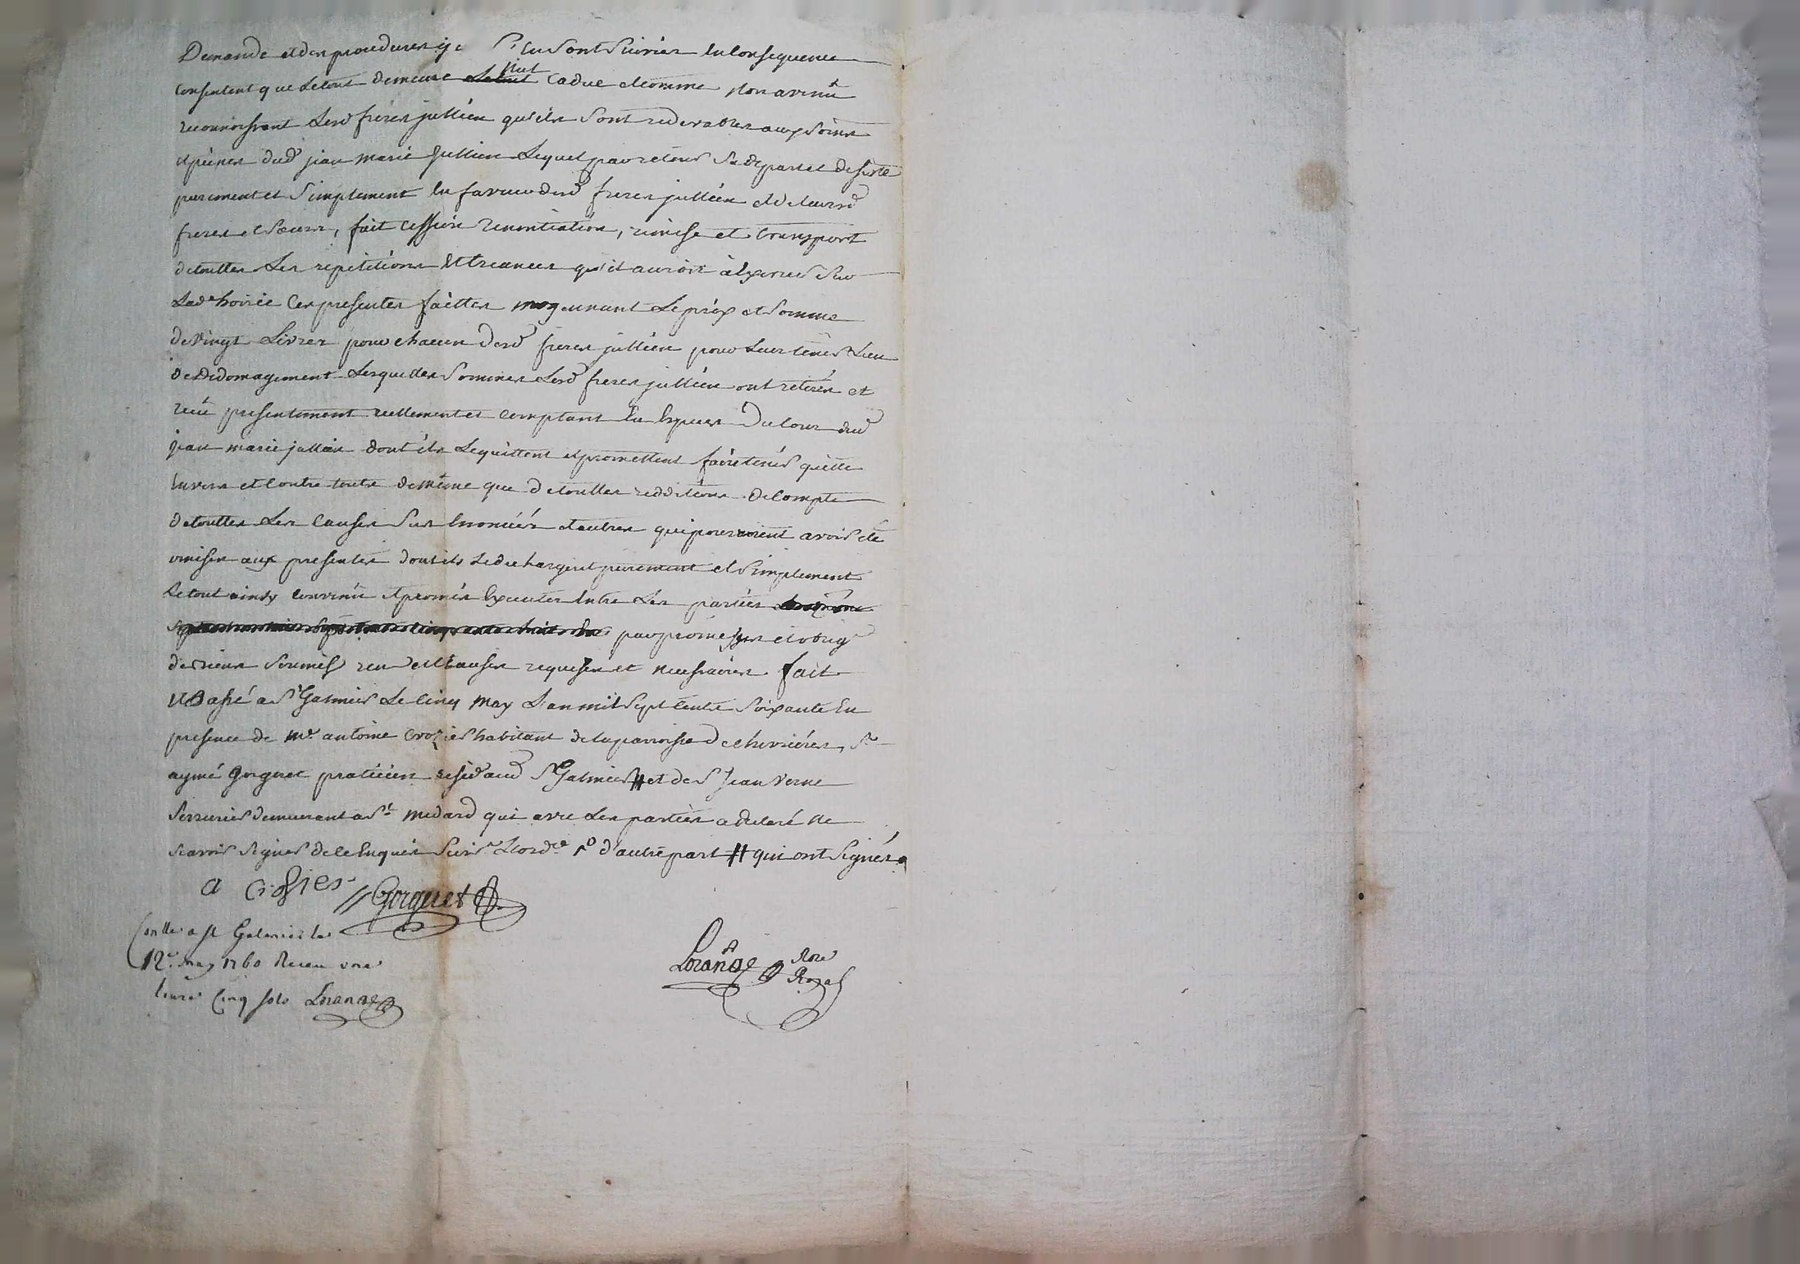 Demande et des procedures q S. En sont suivies En Consequence
Consentent que Le tout demeure nul Cadue et Comme Non avenu
reconnoissent Lesd freres jullien qu'ils sont redevables aux soins
et peines dud jean marie jullien Lequel par retour se depart et desiste
purement et simplement En faveur desd freres jullien et de leursd
freres et soeurs, fait Cession renontiation, remise et transport
de touttes Les repetitions et Creances qu'il auroit à Exercer sur
Lad hoirie Ces presentes faittes moyennant Le prix et somme
de vingt Livres pour chacun desd freres jullien pour Leur tenir Lieu
de dedomagement Lesquelles sommes Lesd freres jullien ont retirés et
reçu presentement reellement et Comptant En Especes du Cours dud
jean marie jullien dont ils Le quittent et promettent faire tenir quitte
Envers et Contre touts de même que de touttes redditions de Compte
de touttes Les Causes sus Enoncées et autres qui pourroient avoir été
omises aux presentes dont ils Le dechargent purement et simplement
Le tout ainsy Convenu et promis Executer Entre Les parties
par promesses et oblig
de biens soumis ren et Clauses requises et necessaires fait
et Passé a St Galmier Le Cinq May L'an mil sept Cents soixante En
presence de Me antoine Crozier habitant de la parroisse de Chevrières, Sr
aymé Gorgeret praticien resid aud St Galmier # et de Sr Jean Verne
serrurier demeurant a St Medard qui avec Les parties a declaré Ne
scavoir signer de ce Enquis d'autre part # qui ont signés
a Crozier Gorgeret
Conllé a St Galmier Le
12e may 1760 Receu une
livre Cinq sols Lorange
Lorange Nore
Royal